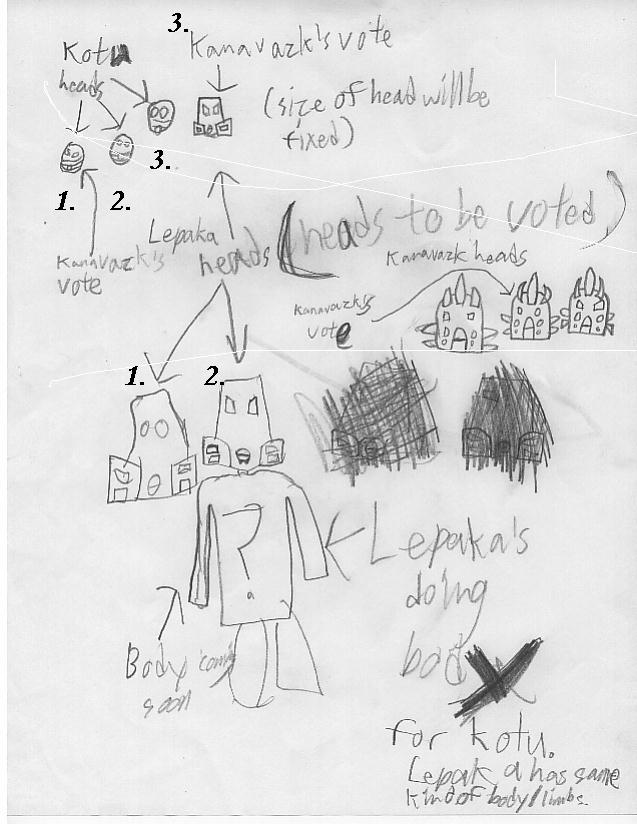 3.
Kotu
heads
Kanavazk's vote
(size of head will be
fixed)
3.
1. 2.
Kanavazk's
vote
Lepaka
heads
(heads to be voted)
Kanavazk heads
Kanavazk's
vote
1. 2.
?
Lepaka's
doing
bod
Body comig
soon
for kotu.
Lepaka has same
kind of body/limbs.